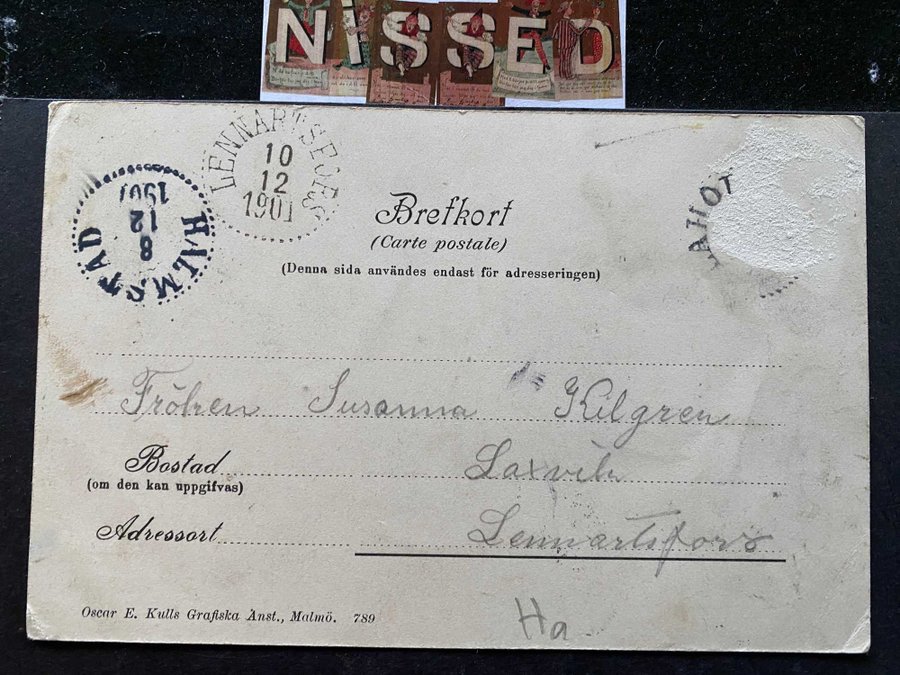 NISSED
LENNARTSFORS
10
12
1901
HALMSTAD
8
12
1901
LAHOL
Brefkort
(Carte postale)
(Denna sida användes endast för adresseringen)
Fröken Susanna Kilgren
Bostad Laxvik
(om den kan uppgifvas)
Adressort Lennartsfors
Oscar E. Kulls Grafiska Anst., Malmö. 789
Ha